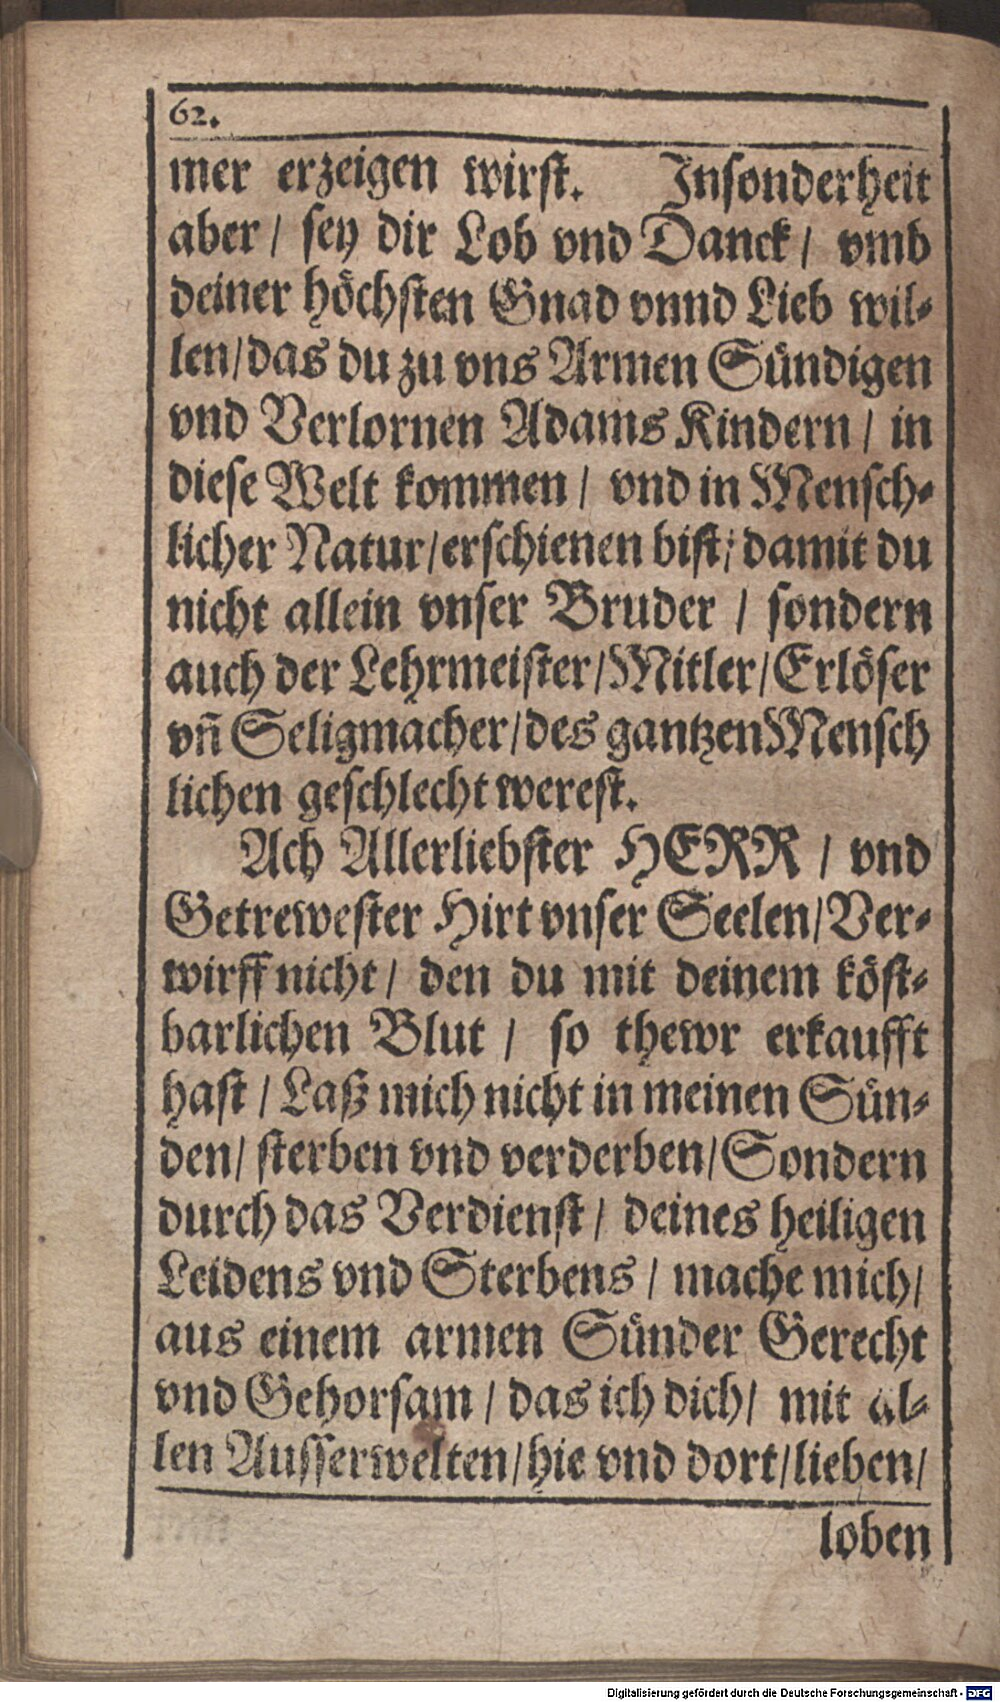 62.
mer erzeigen wirst. Jnsonderheit
aber / sey dir Lob vnd Danck / vmb
deiner höchsten Gnad vnnd Lieb wil-
len/das du zu vns Armen Sündigen
vnd Verlornen Adams Kindern / in
diese Welt kommen / vnd in Mensch-
licher Natur/erschienen bist; damit du
nicht allein vnser Bruder / sondern
auch der Lehrmeister/Mitler/Erlöser
vñ Seligmacher/des gantzen Mensch
lichen geschlecht werest.
Ach Allerliebster HERR / vnd
Getrewester Hirt vnser Seelen/Ver-
wirff nicht/ den du mit deinem köst-
barlichen Blut / so thewr erkaufft
hast / Laß mich nicht in meinen Sün-
den/ sterben vnd verderben/Sondern
durch das Verdienst / deines heiligen
Leidens vnd Sterbens / mache mich/
aus einem armen Sünder Gerecht
vnd Gehorsam / das ich dich/ mit al-
len Ausserwelten/hie vnd dort/lieben/
loben
Digitalisierung gefördert durch die Deutsche Forschungsgemeinschaft - DFG